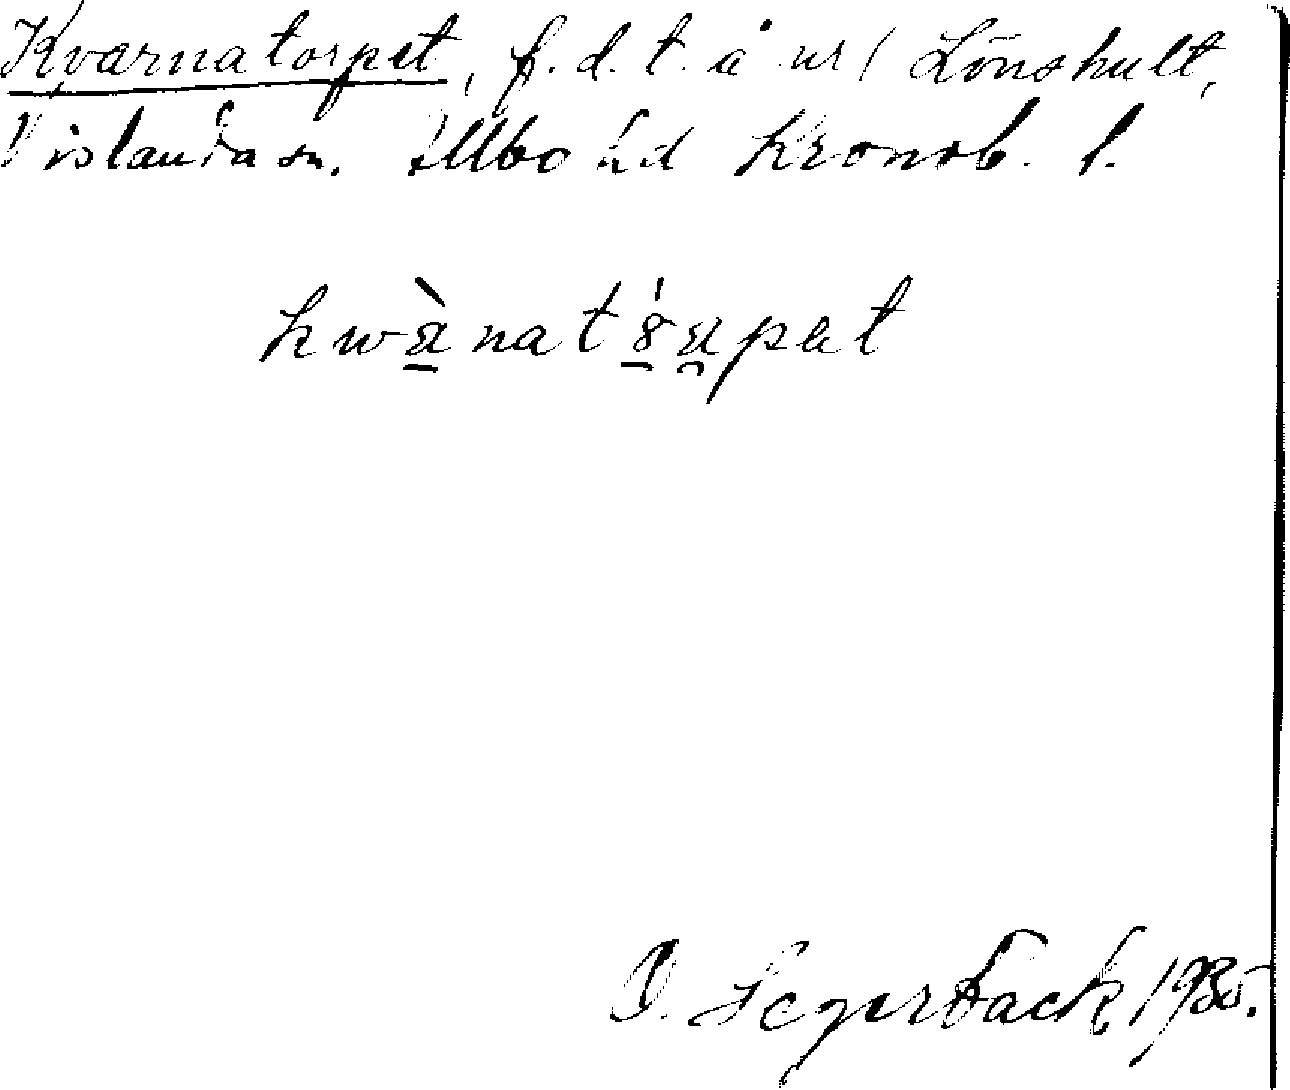 Kvarnatorpet, f.d.t. å ur / Lönshult,
Vislanda sn. Allbo hd Kronob. l.
kwànatǿupet
O. Segerbäck 1935.